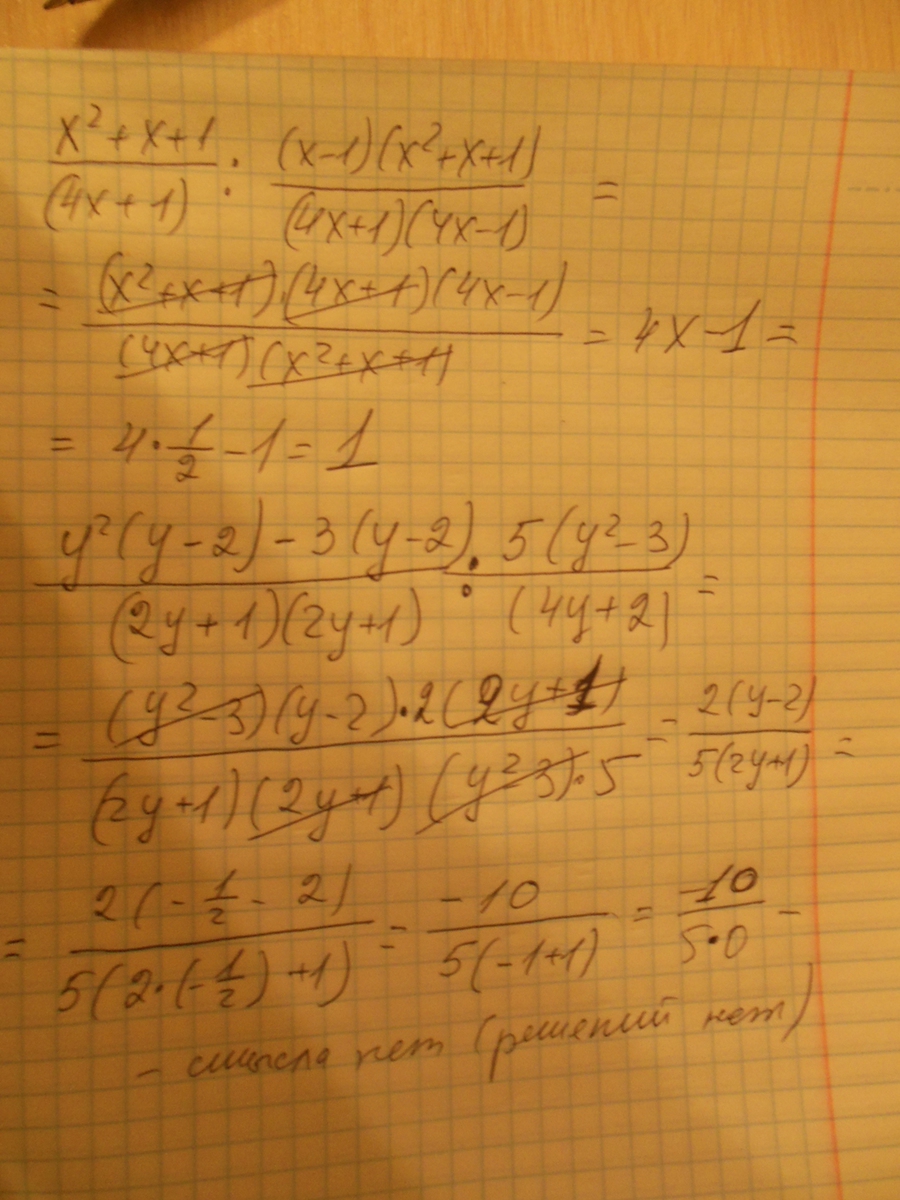 (x²+x+1)/(4x+1) : ((x-1)(x²+x+1))/((4x+1)(4x-1)) =
= ((x²+x+1)·(4x+1)(4x-1))/((4x+1)(x²+x+1)) = 4x-1 =
= 4·1/2-1 = 1
(y²(y-2)-3(y-2))/((2y+1)(2y+1)) : (5(y²-3))/(4y+2) =
= ((y²-3)(y-2)·2(2y+1))/((2y+1)(2y+1)(y²-3)·5) = (2(y-2))/(5(2y+1)) =
= (2(-1/2-2))/(5(2·(-1/2)+1)) = (-10)/(5(-1+1)) = (-10)/(5·0) -
- смысла нет (решений нет)